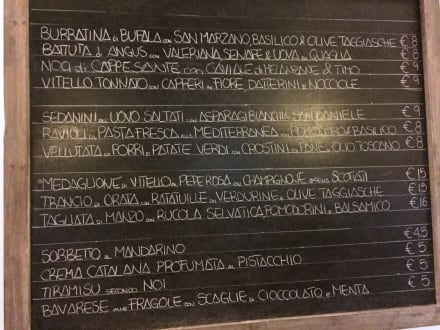 BURRATINA di BUFALA con SAN MARZANO, BASILICO & OLIVE TAGGIASCHE € 8
BATTUTA di ANGUS con VALERIANA, SENAPE & UOVA di QUAGLIA € 8
NOCI di CAPPESANTE con CAVIALE di MELANZANE & TIMO € 9
VITELLO TONNATO con CAPPERI in FIORE, DATTERINI e NOCCIOLE € 9
SEDANINI all'UOVO SALTATI con ASPARAGI BIANCHI & SAN DANIELE € 9
RAVIOLI di PASTA FRESCA alla MEDITERRANEA con POMODORO & BASILICO € 8
VELLUTATA di PORRI e PATATE VERDI con CROSTINI di PANE e OLIO TOSCANO € 8
MEDAGLIONE di VITELLO al PEPE ROSA con CHAMPIGNON € 15
TRANCIO di ORATA con RATATUILLE di VERDURINE e OLIVE TAGGIASCHE € 15
TAGLIATA di MANZO con RUCOLA SELVATICA POMODORINI e BALSAMICO € 16
€ 4.5
SORBETTO al MANDARINO € 5
CREMA CATALANA PROFUMATA al PISTACCHIO € 5
TIRAMISU secondo NOI € 5
BAVARESE alle FRAGOLE con SCAGLIE di CIOCCOLATO e MENTA € 5